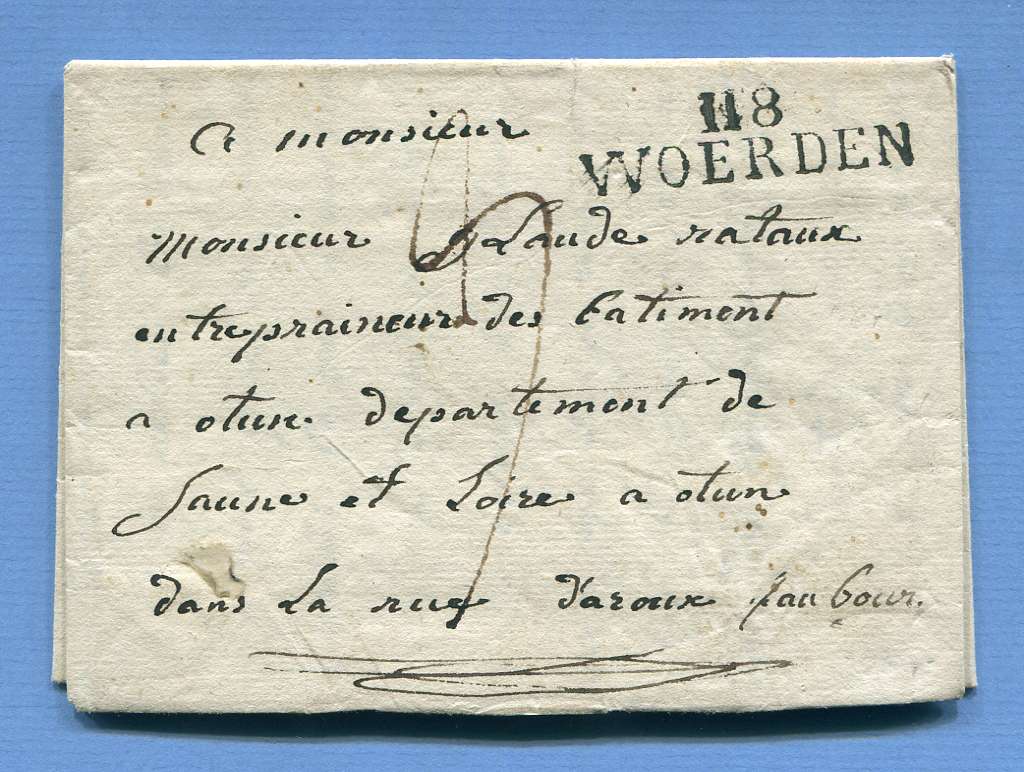 118
WOERDEN
a monsieur
monsieur Claude rataux
entrepraineur des batiment
a otun departement de
saune et Loire a otun
dans La rue d'aroux faubour.